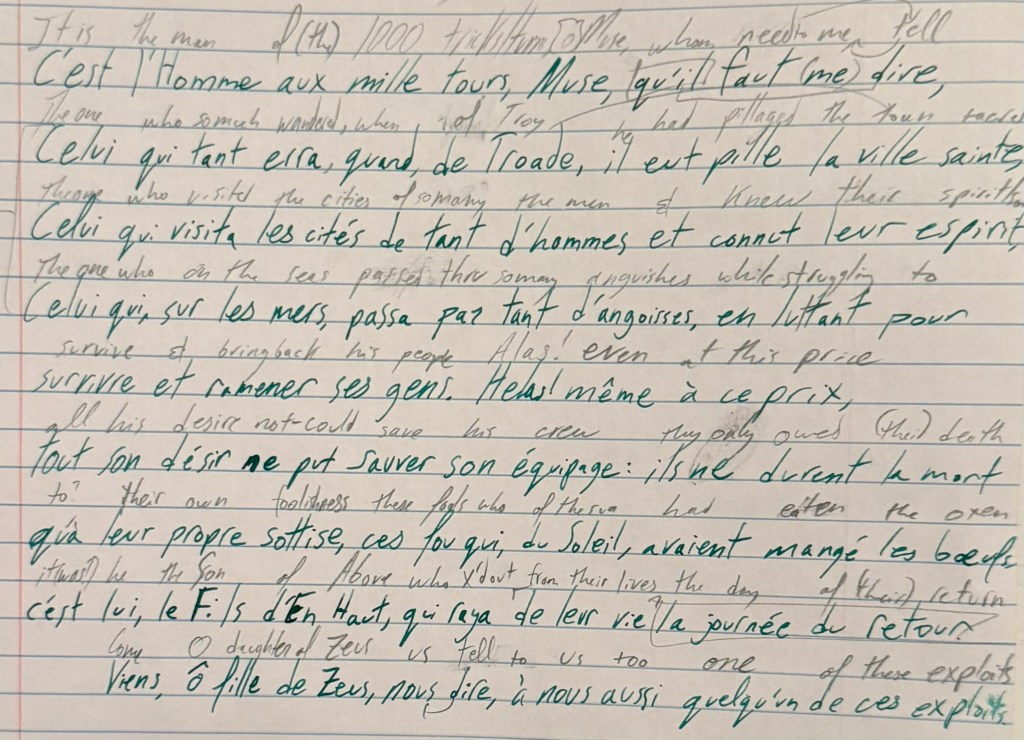 It is the man of (the) 1000 tricks/turns [O] Muse, whom needs me tell
C'est l'Homme aux mille tours, Muse, qu'il faut (me) dire,
The one who so much wandered, when, of Troy he had pillaged the town sacred
Celui qui tant erra, quand, de Troade, il eut pillé la ville sainte,
The one who visited the cities of so many the men & knew their spirit
Celui qui visita les cités de tant d'hommes et connut leur esprit,
The one who on the seas passed thru so many anguishes while struggling to
Celui qui, sur les mers, passa par tant d'angoisses, en luttant pour
survive & bring back his people Alas! even at this price
survivre et ramener ses gens. Helas! même à ce prix,
all his desire not-could save his crew they only owed (their) death
tout son désir ne put sauver son équipage: ils ne durent la mort
to? their own foolishness these fools who of the sun had eaten the oxen
qu'à leur propre sottise, ces fou qui, du Soleil, avaient mangé les bœufs
it (was) he the Son of Above who x'd out from their lives the day of (their) return
c'est lui, le Fils d'En Haut, qui raya de leur vie la journée du retour.
Come O daughter of Zeus us tell to us too one of these exploits
Viens, ô fille de Zeus, nous dire, à nous aussi quelqu'un de ces exploits.